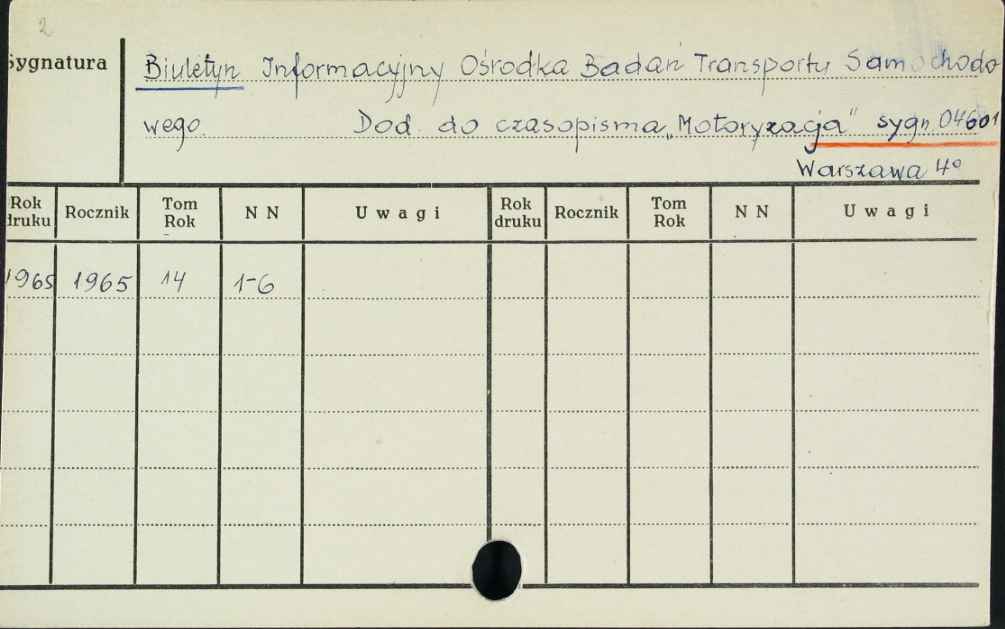 2
Sygnatura
Biuletyn Informacyjny Ośrodka Badań Transportu Samochodo
wego. Dod. do czasopisma „Motoryzacja" sygn. 04601
Warszawa 4°
Rok druku Rocznik Tom Rok N N Uwagi Rok druku Rocznik Tom Rok N N Uwagi
1965 1965 14 1-6